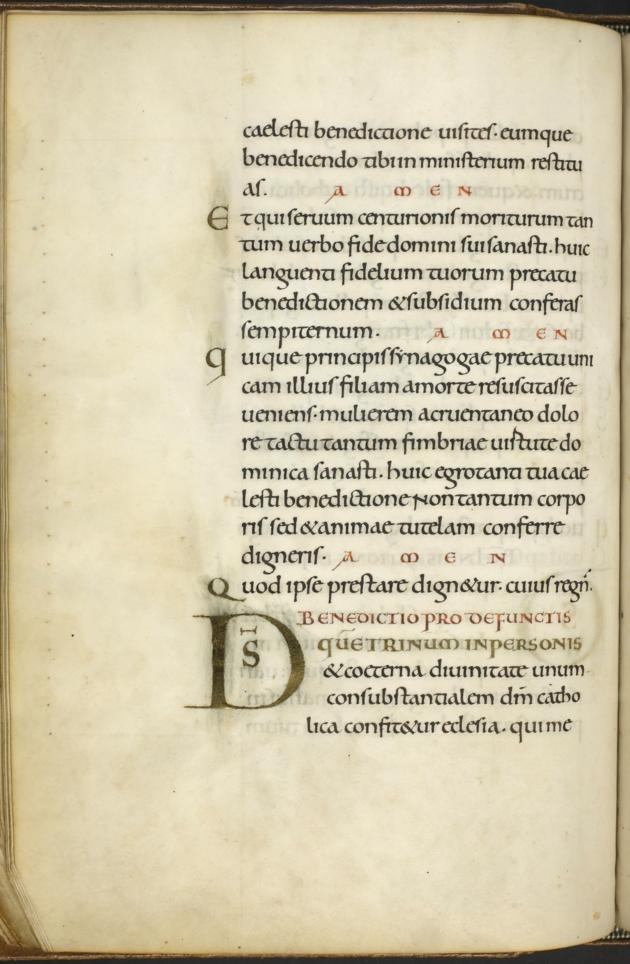 caelesti benedictione uisites. eumque
benedicendo tibi in ministerium restitu
as. AMEN
Et qui seruum centurionis moriturum tan
tum uerbo fide domini sui sanasti. huic
languenti fidelium tuorum precatu
benedictionem & subsidium conferas
sempiternum. AMEN
quique principis synagogae precatu uni
cam illius filiam a morte resuscitasse
ueniens. mulierem a cruentaneo dolo
re tactu tantum fimbriae uirtute do
minica sanasti. huic egrotanti tua cae
lesti benedictione Non tantum corpo
ris sed & animae tutelam conferre
digneris. AMEN
Quod ipse prestare dign&ur. cuius regñ.
BENEDICTIO PRO DEFUNCTIS
DS̄ QUĒ TRINUM IN PERSONIS
& coeterna diuinitate unum
consubstantialem dm̄ catho
lica confit&ur eclesia. qui me